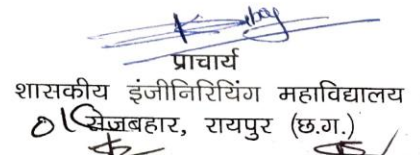 प्राचार्य
शासकीय इंजीनिरियिंग महाविद्यालय
सेजबहार, रायपुर (छ.ग.)